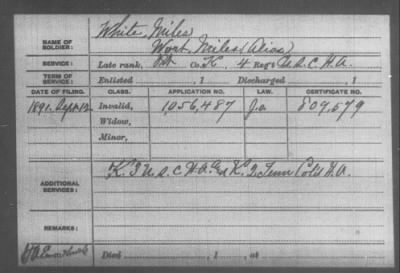 White, Miles
NAME OF SOLDIER: Wort, Miles (Alias)
SERVICE: Late rank, Pvt Co. K, 4 Reg't U.S.C.H.A.
TERM OF SERVICE: Enlisted , 1 Discharged , 1
DATE OF FILING. CLASS. APPLICATION NO. LAW. CERTIFICATE NO.
1891, Sept 12 Invalid, 1,056,487 807,579
Widow,
Minor,
ADDITIONAL SERVICES: K. 3 U.S.C.H.A. & K. 2 Tenn Cold H.A.
REMARKS:
Died , 1 , at